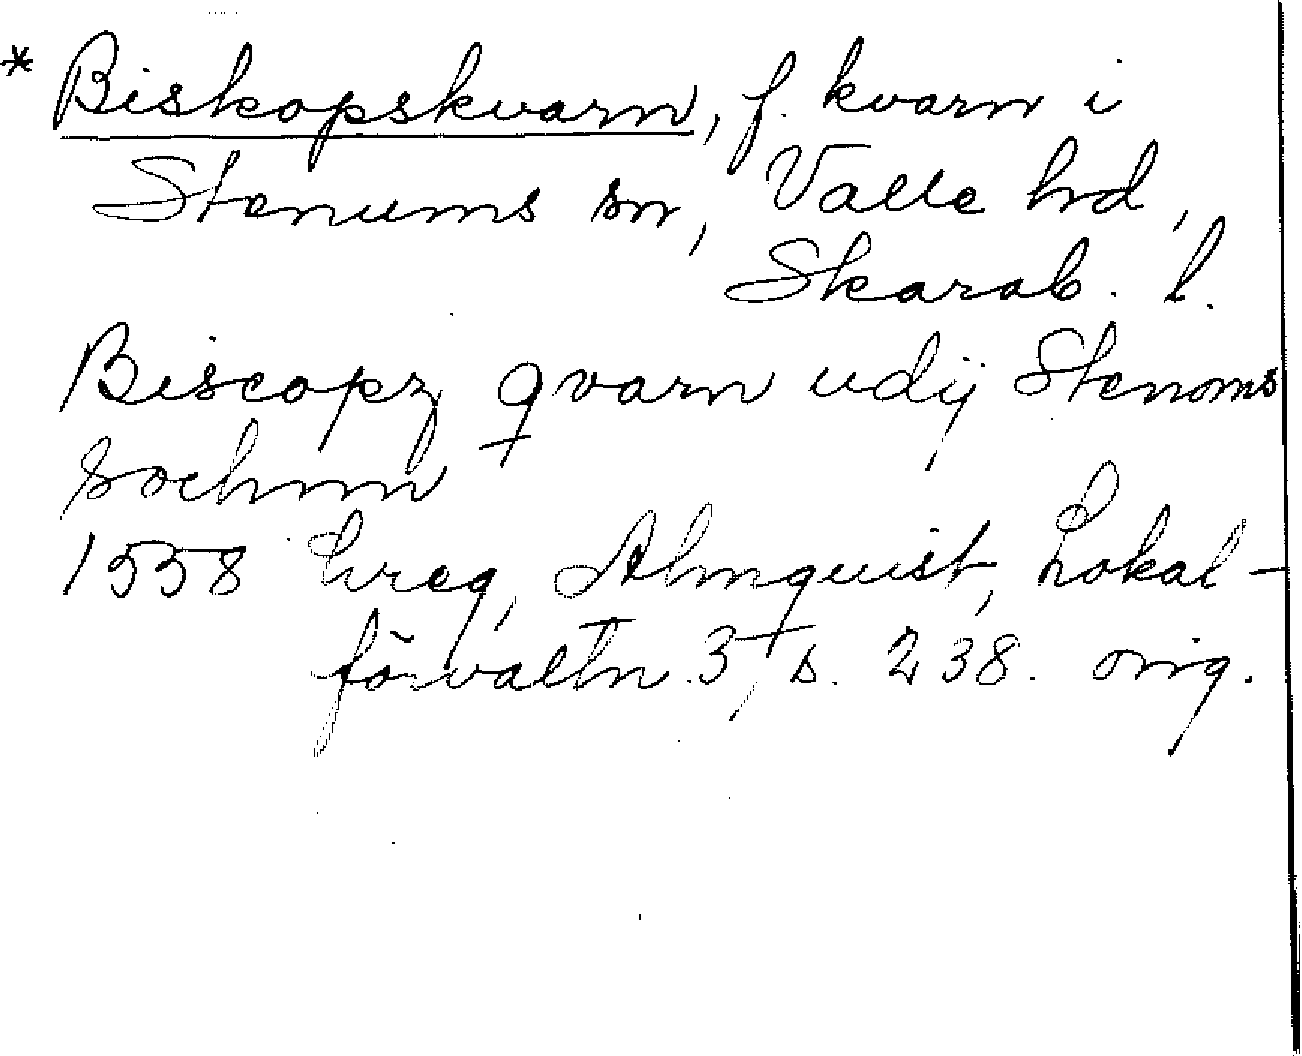 * Biskopskvarn, f. kvarn i
Stenums sn, Valle hd,
Skarab. l.
Biscopz qvarn udij Stenoms
sochnn
1558 Almquist, Lokal-
förvaltn. 3, s. 238. orig.